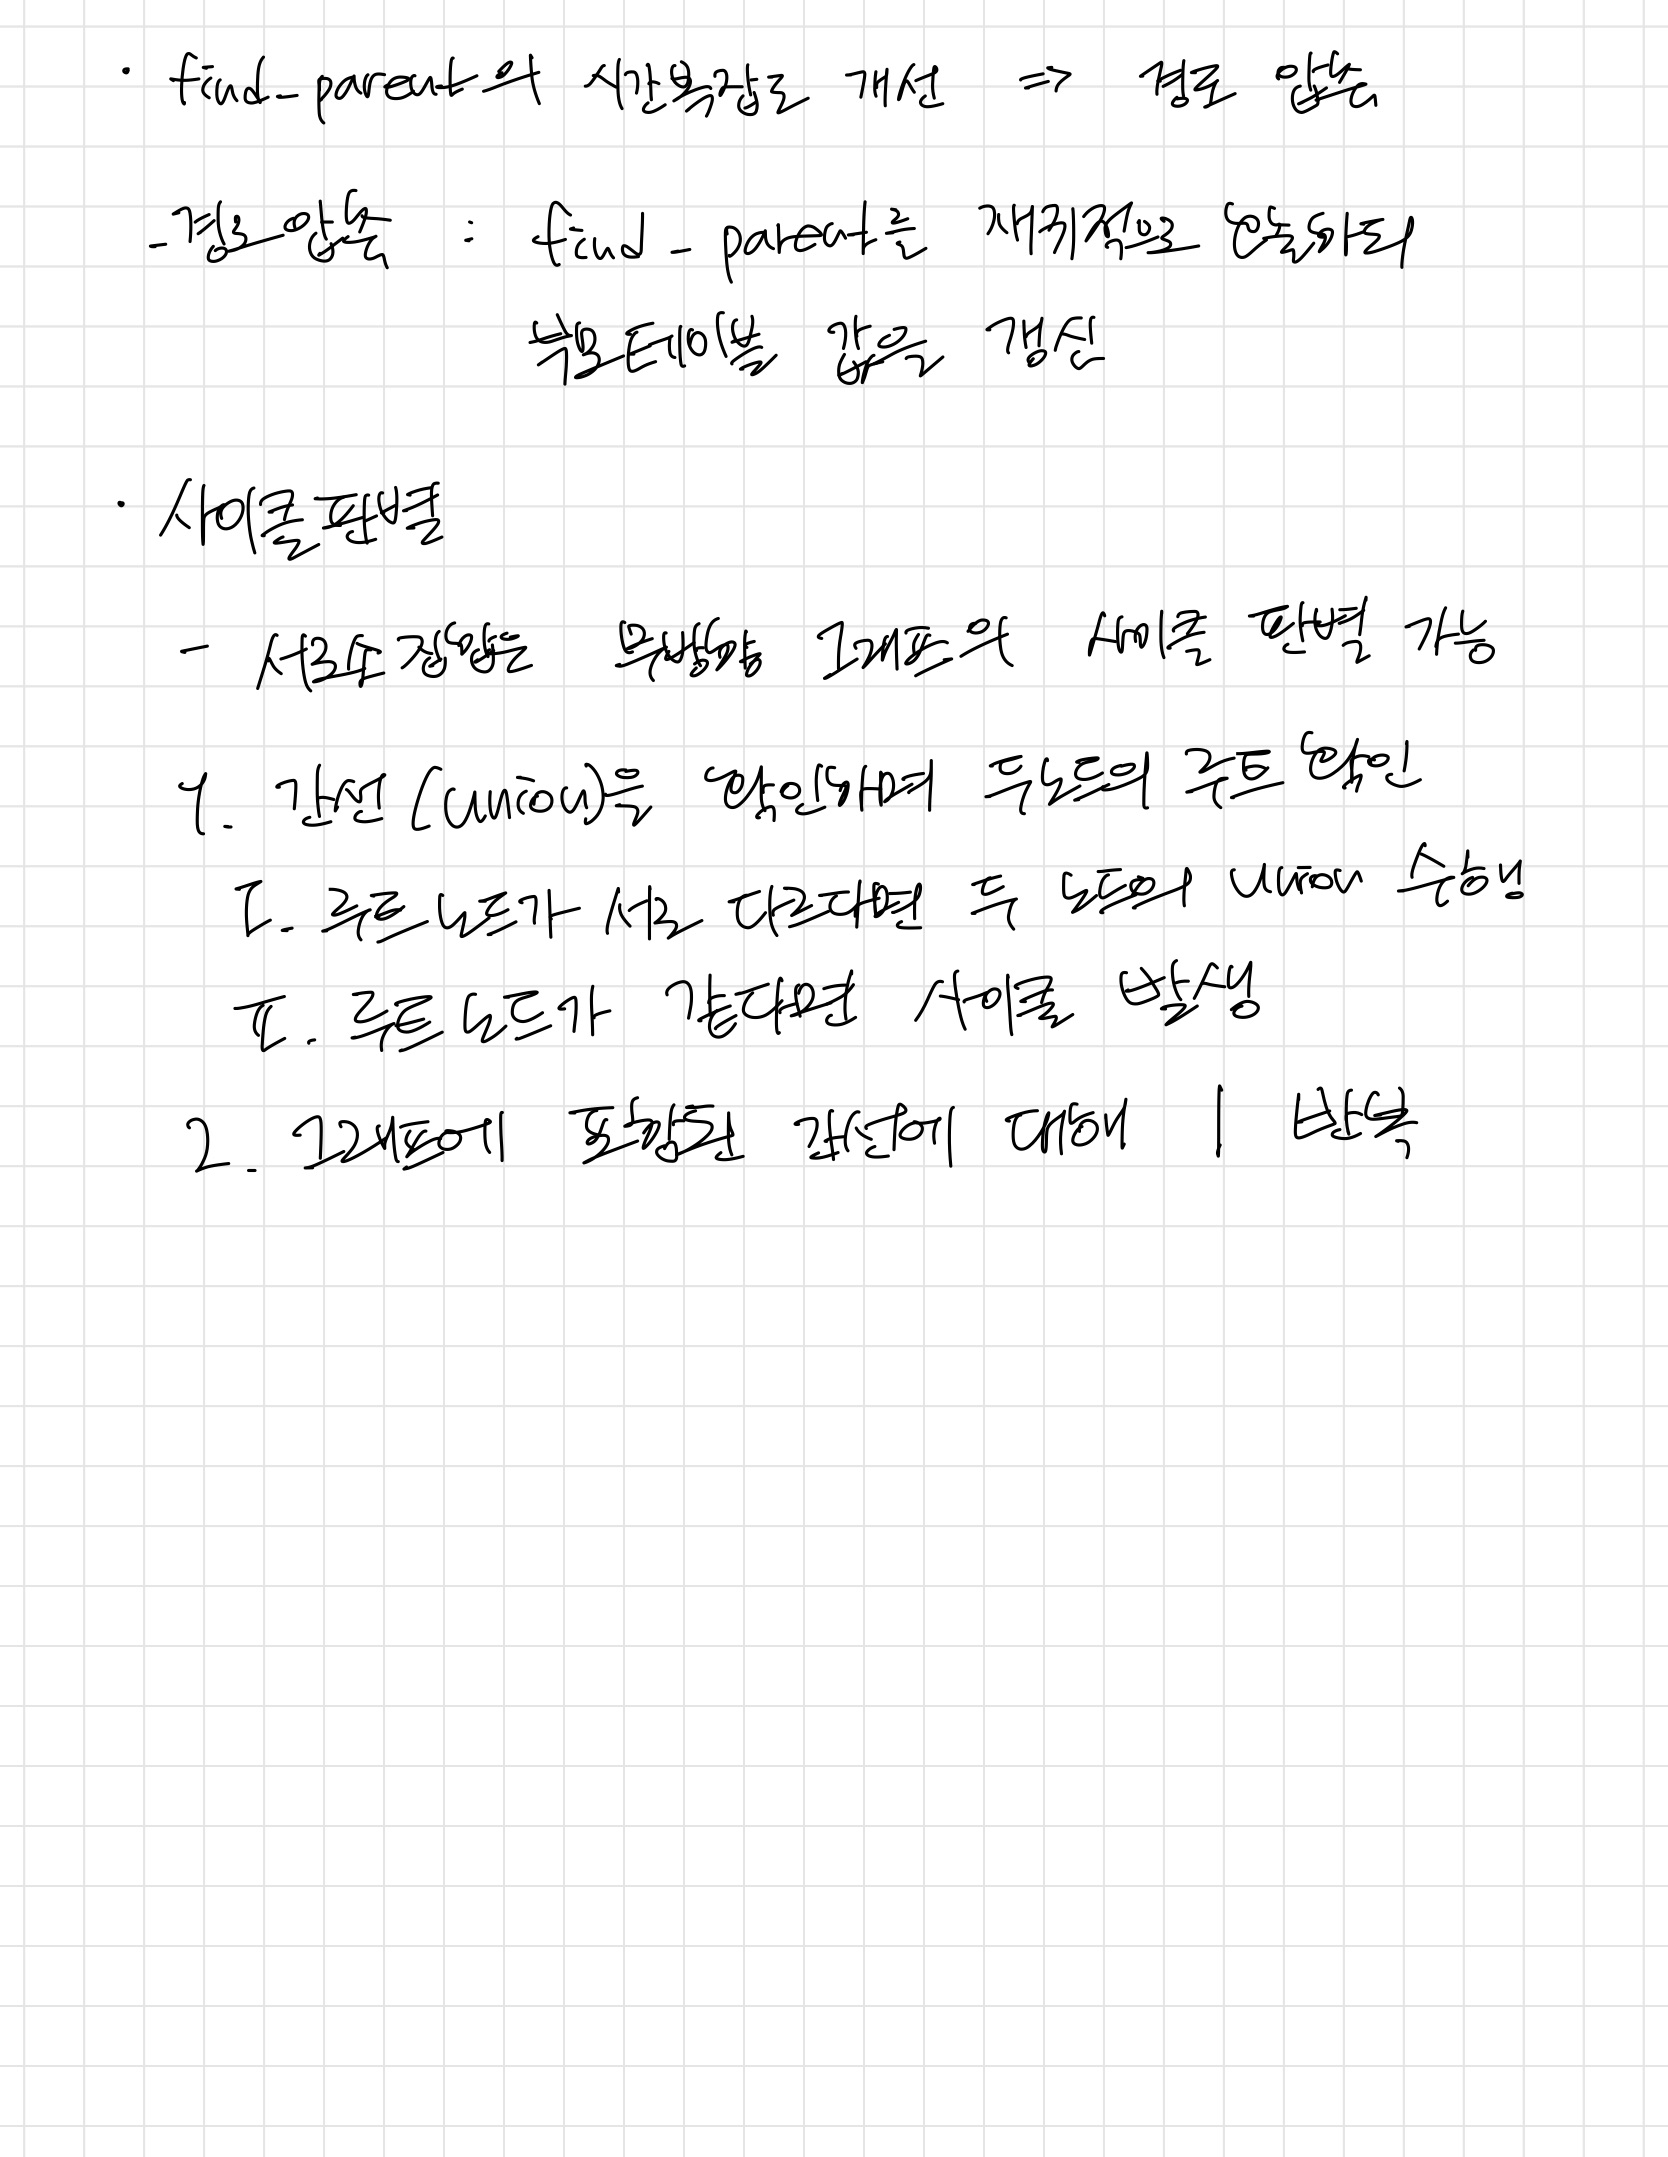 · find_parent의 시간복잡도 개선 => 경로 압축
- 경로 압축 : find_parent를 재귀적으로 호출하되
부모테이블 값을 갱신
· 사이클 판별
- 서로소 집합은 무방향 그래프의 사이클 판별 가능
1. 간선(union)을 확인하며 두 노드의 루트 확인
I. 루트노드가 서로 다르다면 두 노드의 union 수행
II. 루트노드가 같다면 사이클 발생
2. 그래프에 포함된 간선에 대해 1 반복